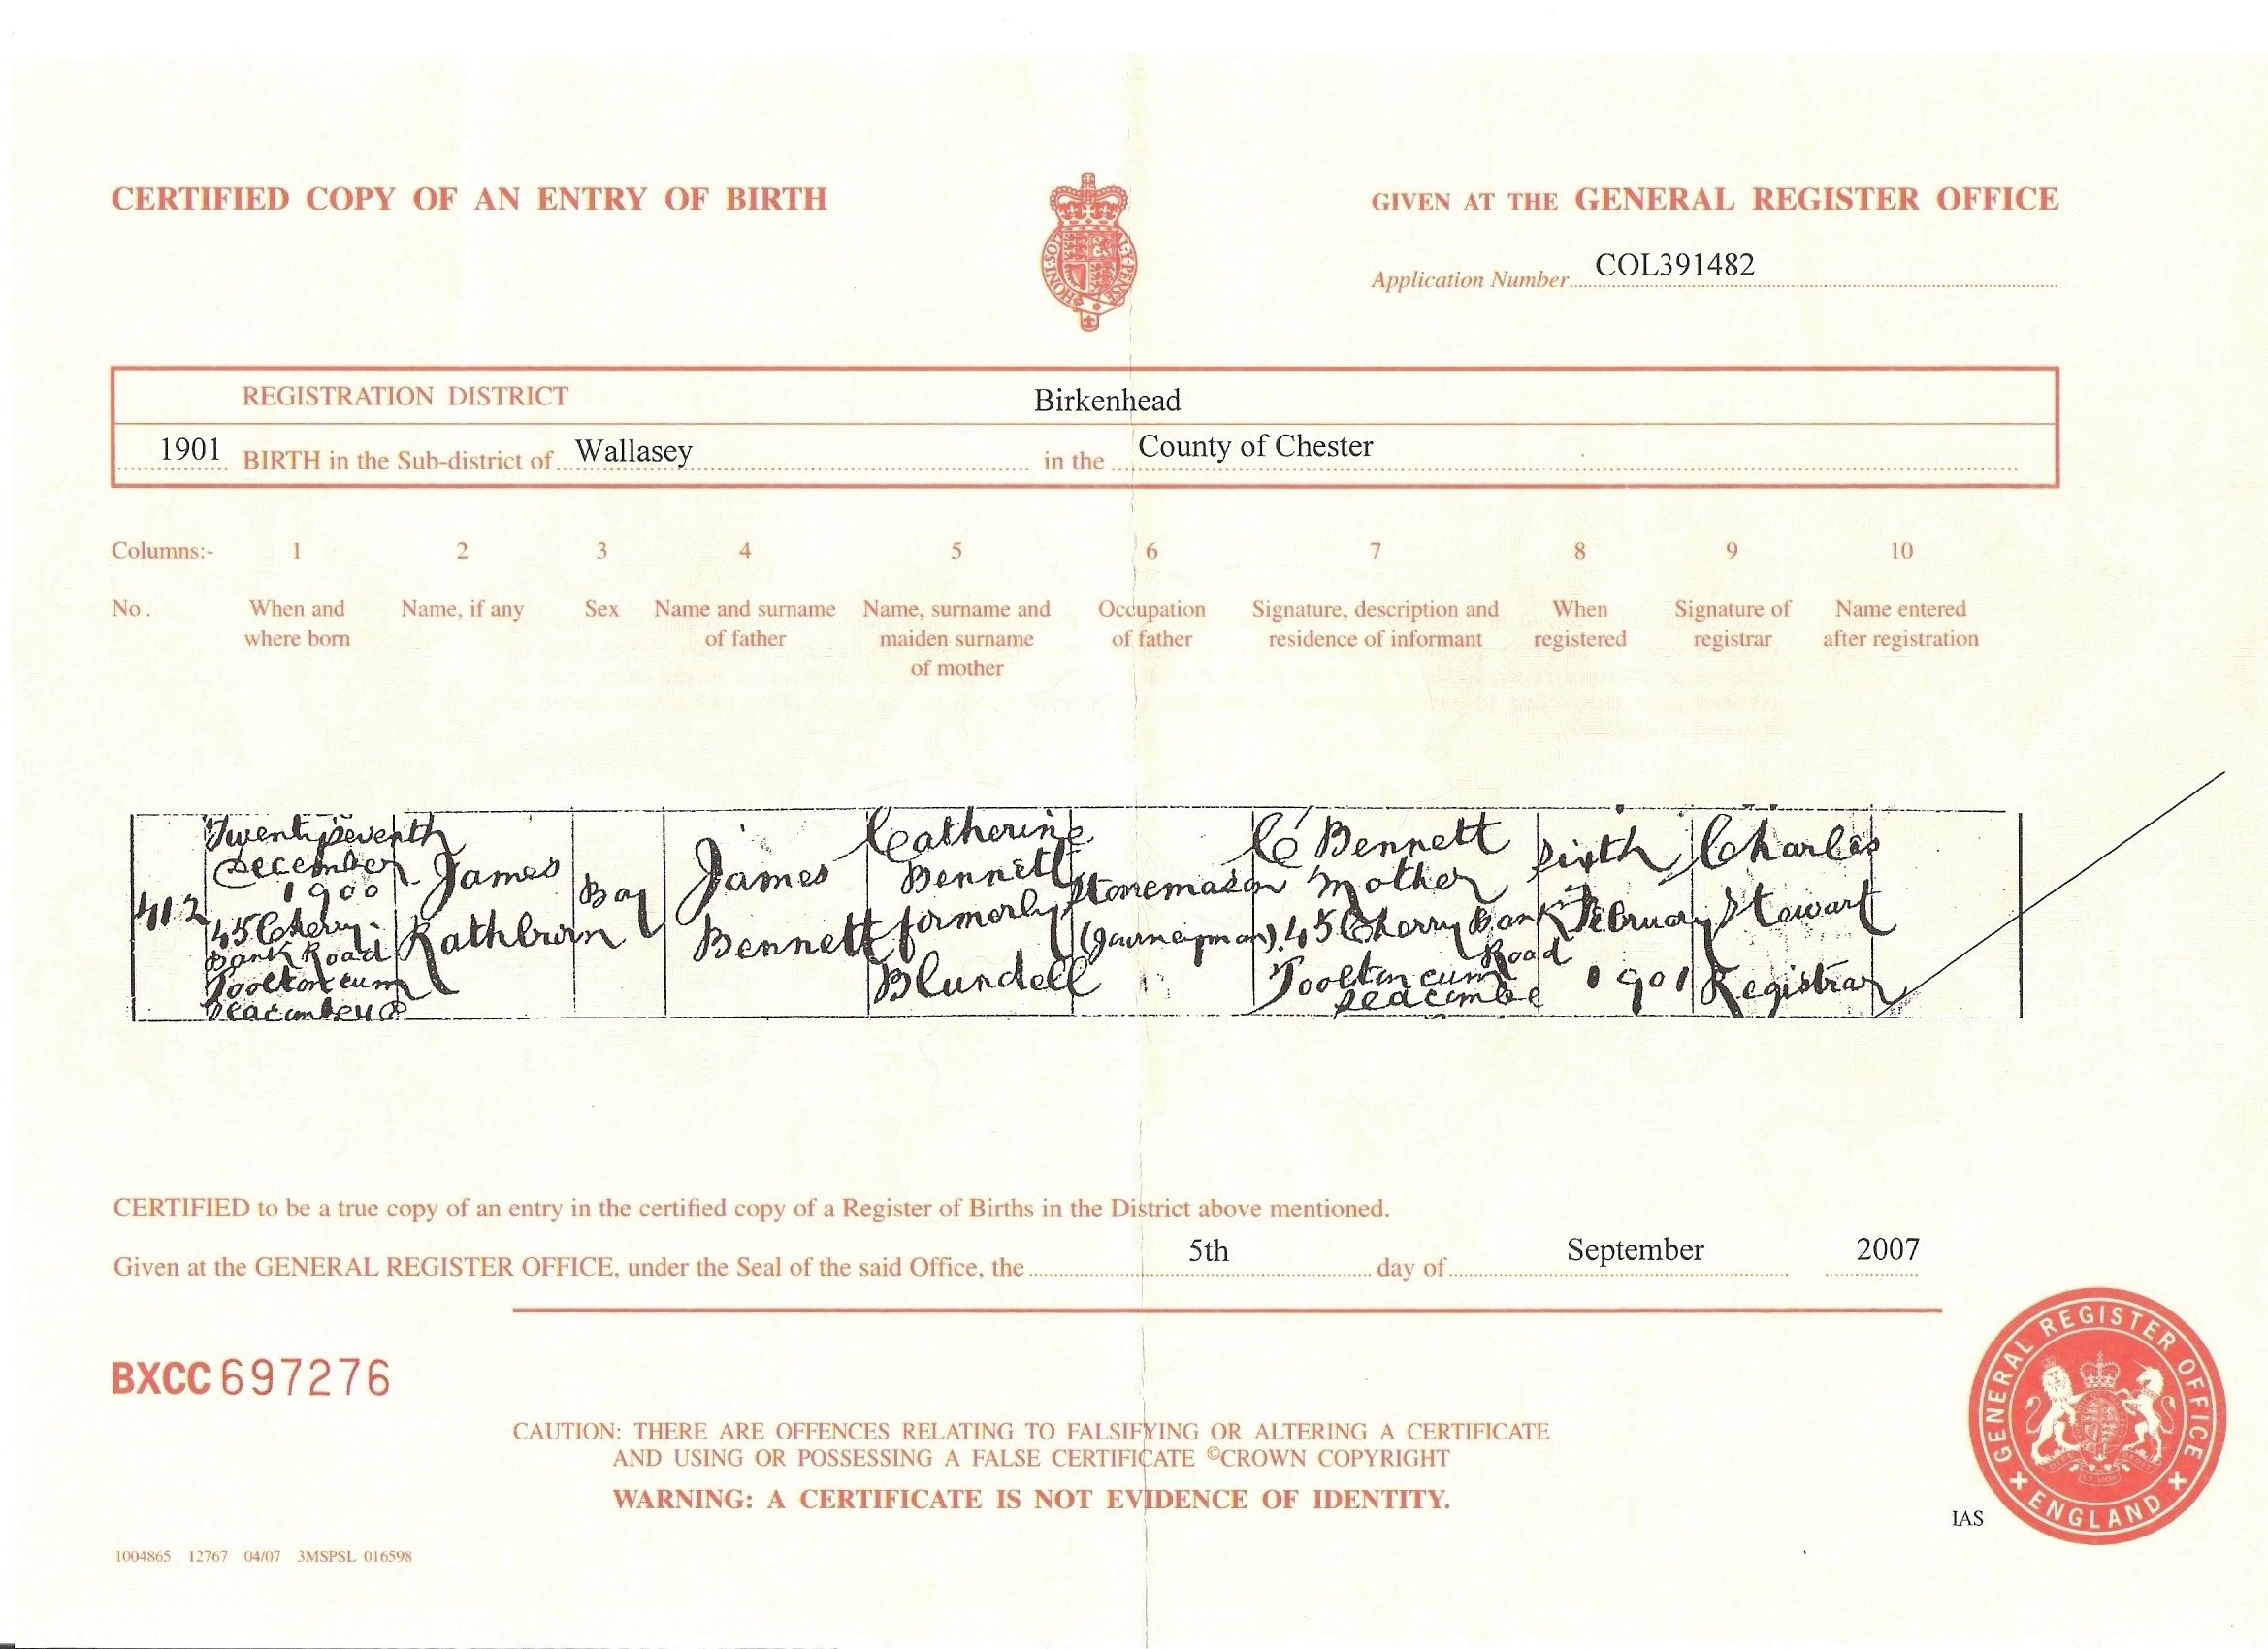 CERTIFIED COPY OF AN ENTRY OF BIRTH
GIVEN AT THE GENERAL REGISTER OFFICE
Application Number COL391482
REGISTRATION DISTRICT Birkenhead
1901 BIRTH in the Sub-district of Wallasey in the County of Chester
Columns:- 1 2 3 4 5 6 7 8 9 10
No. When and Name, if any Sex Name and surname Name, surname and Occupation Signature, description and When Signature of Name entered
where born of father maiden surname of father residence of informant registered registrar after registration
of mother
412
Twenty seventh
December
1900
45 Cherry
Bank Road
Poolton cum
Seacombe
James
Rathburn
Boy
James
Bennett
Catherine
Bennett
formerly
Blundell
Stonemason
(Journeyman)
C Bennett
Mother
45 Cherry Bank
Road
Poolton cum
Seacombe
Sixth
February
1901
Charles
Stewart
Registrar
CERTIFIED to be a true copy of an entry in the certified copy of a Register of Births in the District above mentioned.
Given at the GENERAL REGISTER OFFICE, under the Seal of the said Office, the 5th day of September 2007
BXCC 697276
CAUTION: THERE ARE OFFENCES RELATING TO FALSIFYING OR ALTERING A CERTIFICATE
AND USING OR POSSESSING A FALSE CERTIFICATE ©CROWN COPYRIGHT
WARNING: A CERTIFICATE IS NOT EVIDENCE OF IDENTITY.
GENERAL REGISTER OFFICE
ENGLAND
IAS
1004865 12767 04/07 3MSPSL 016598